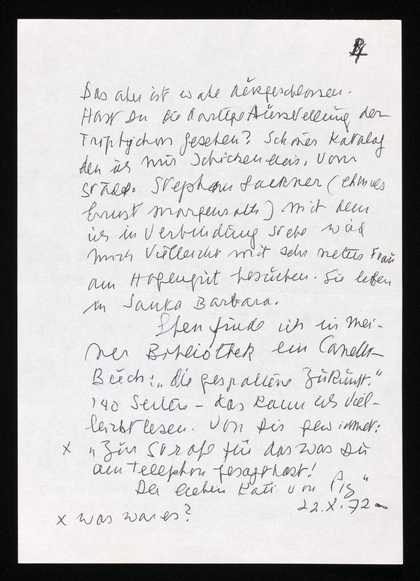 Das aber ist wohl ausgeschlossen.
Hast Du die dortige Ausstellung der
Triptychon gesehen? Schönes Katalog
den ich mir schicken liess, vom
Städel. Stephan Lackner (ehemals
Ernst Morgenroth) mit dem
ich in Verbindung stehe wird
mich vielleicht mit sehr netter Frau
am Hagengut besuchen. Sie leben
in Santa Barbara.
Eben finde ich in mei-
ner Bibliothek ein Canetti-
Buch: „Die gespaltene Zukunft."
140 Seiten – das kann ich viel-
leicht lesen. Von Dir gewidmet:
x „Zur Strafe für das was Du
am Telephon gesagt hast!
Der lieben Kati von Piz"
22.X.72
x was war es?